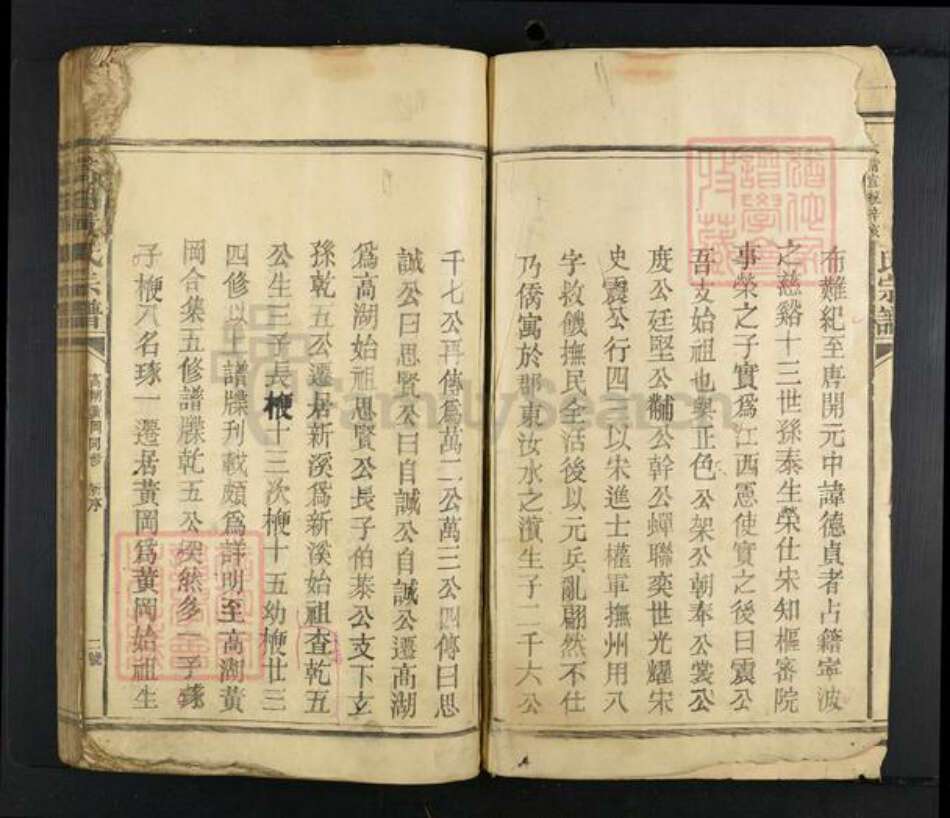 布難紀至唐開元中諱德貞者占籍寧波
之慈谿十三世孫泰生榮仕宋知樞密院
事榮之子實爲江西憲使實之後曰震公
吾支始祖也與正色公架公朝奉公裳公
度公廷堅公黼公幹公蟬聯奕世光耀宋
史震公行四以宋進士權軍撫州用八
字救饑撫民全活後以元兵亂翩然不仕
乃僑寓於郡東汝水之濱生子二千六公
千七公再傳爲萬二公萬三公四傳曰思
誠公曰思賢公曰自誠公自誠公遷高湖
爲高湖始祖思賢公長子伯泰公支下玄
孫乾五公遷居新溪爲新溪始祖查乾五
公生三子長楩十三次楩十五幼楩廿三
四修以上譜牒刊載頗爲詳明至高湖黃
岡合集五修譜牒乾五公突然多一子琢
子楩八名琢一遷居黃岡爲黃岡始祖生
氏宗譜
氏宗譜
高湖黃岡同修
新序
二號
FamilySearch